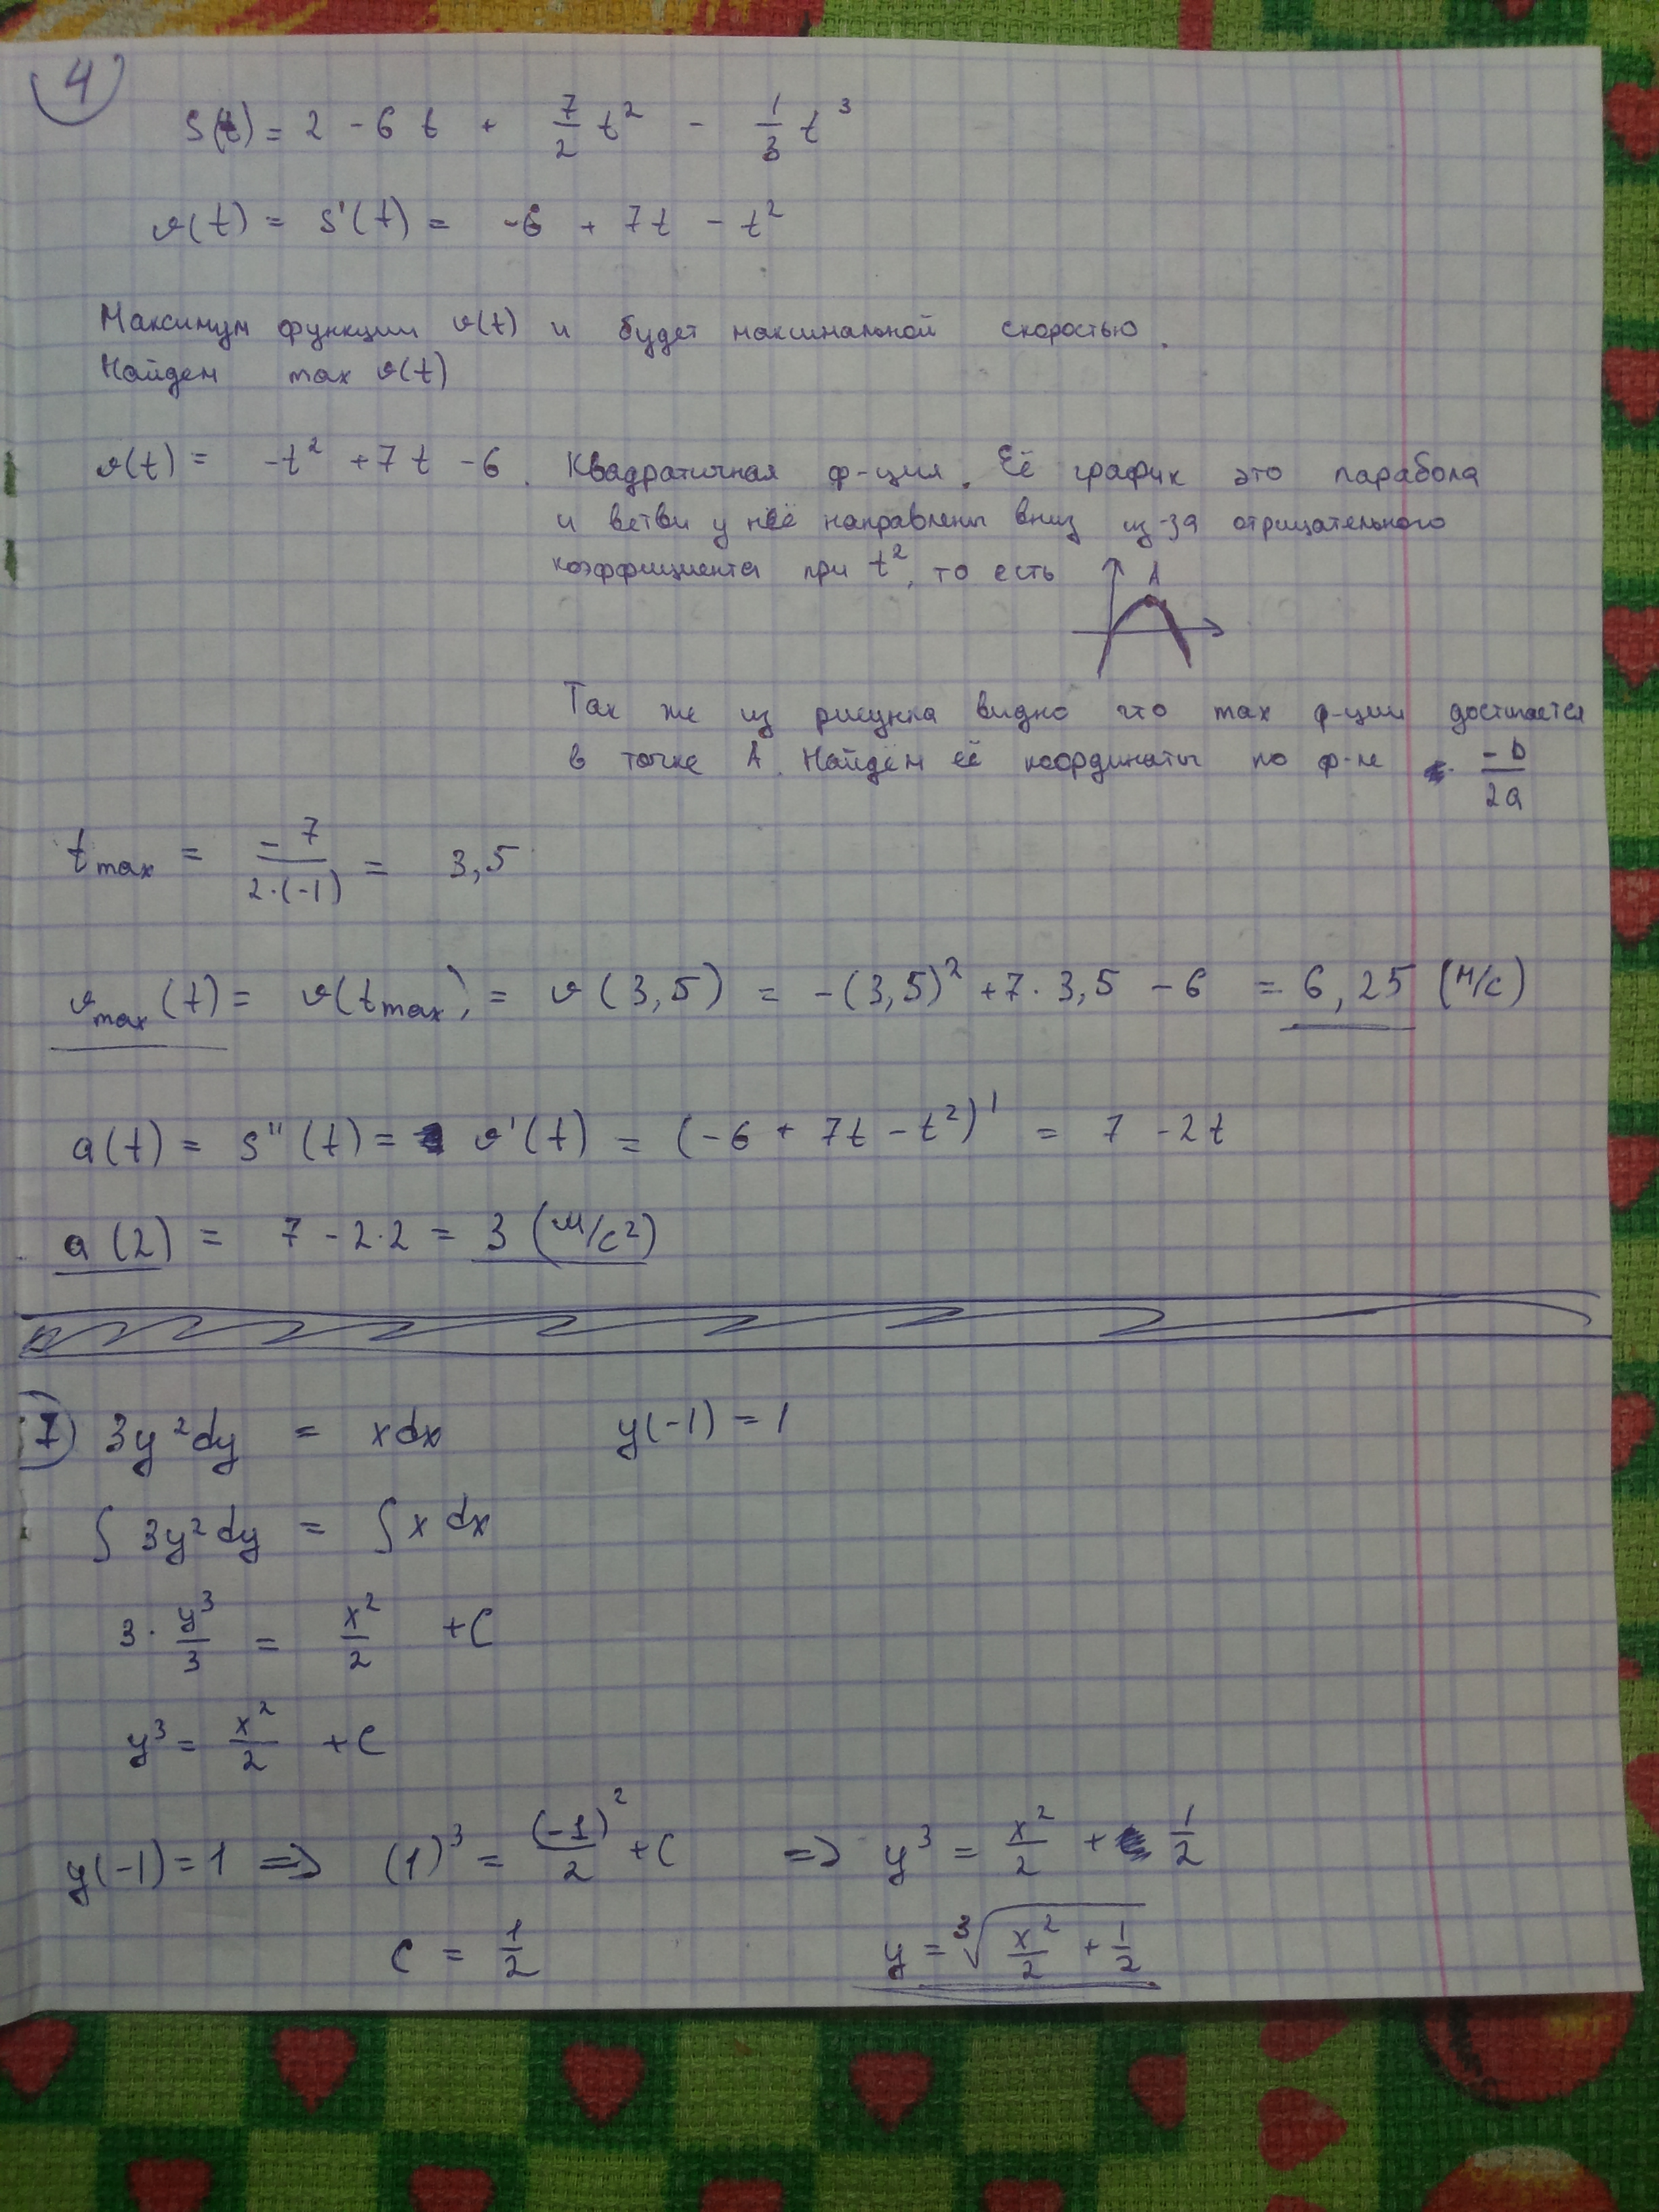 4
S(t) = 2 - 6t + 7/2 t² - 1/3 t³
v(t) = s'(t) = -6 + 7t - t²
Максимум функции v(t) и будет максимальной скоростью.
Найдем max v(t)
v(t) = -t² + 7t - 6. Квадратичная ф-ция. Её график это парабола
и ветви у неё направлены вниз из-за отрицательного
коэффициента при t², то есть
A
Так же из рисунка видно что max ф-ции достигается
в точке A. Найдём её координаты по ф-ле -b/2a
tmax = -7/2·(-1) = 3,5
vmax(t) = v(tmax) = v(3,5) = -(3,5)² + 7·3,5 - 6 = 6,25 (м/с)
a(t) = s''(t) = v'(t) = (-6 + 7t - t²)' = 7 - 2t
a(2) = 7 - 2·2 = 3 (м/с²)
7) 3y²dy = xdx y(-1) = 1
∫ 3y²dy = ∫ x dx
3 · y³/3 = x²/2 + C
y³ = x²/2 + C
y(-1) = 1 => (1)³ = (-1)²/2 + C => y³ = x²/2 + 1/2
C = 1/2 y = ³√(x²/2 + 1/2)